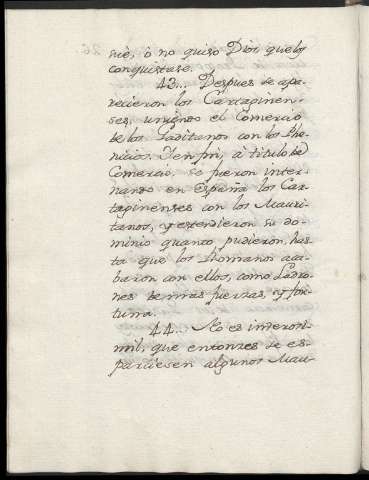 sué, ò no quiso Dios que los
conquistase.
43... Despues se apa-
recieron los Cartaginen-
ses, uniendo el Comercio
de los Gaditanos con los Phe-
nicios. Y en fin, à titulo de
Comercio, se fueron inter-
nando en España los Car-
taginenses con los Mauri-
tanos, y estendieron su do-
minio quanto pudieron, has-
ta que los Romanos aca-
baron con ellos, como Ladro-
nes de mas fuerzas, y for-
tuna.
44... No es inverosi-
mil, que entonzes se es-
parciesen algunos Mau-